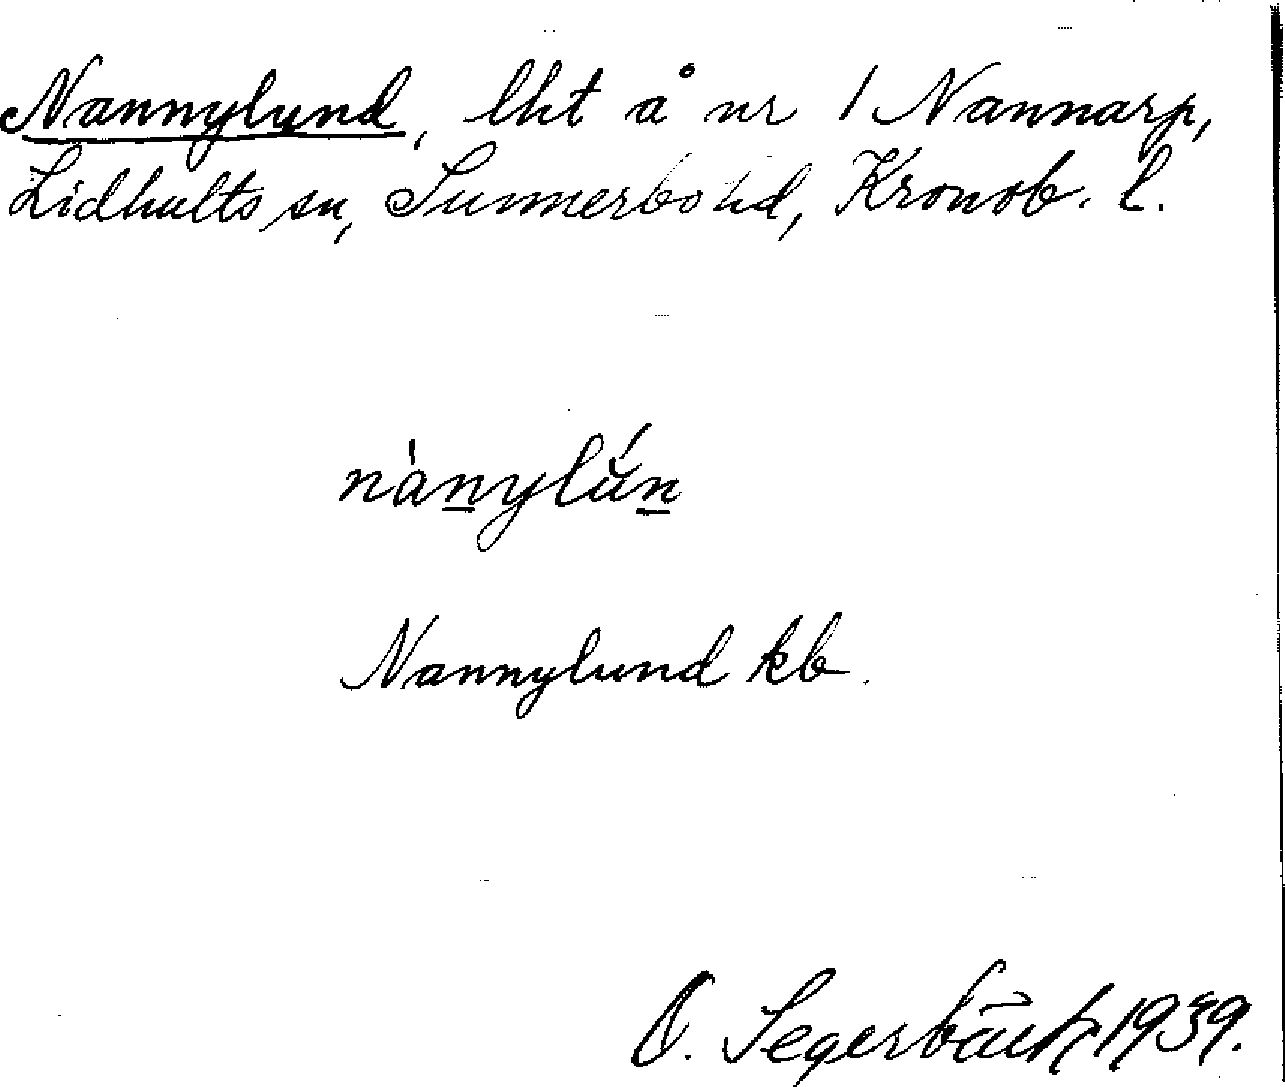 Nannylund, lht å nr 1 Nannarp,
Lidhults sn, Sunnerbo hd, Kronob. l.
nànylún
Nannylund kb.
O. Segerbäck 1939.